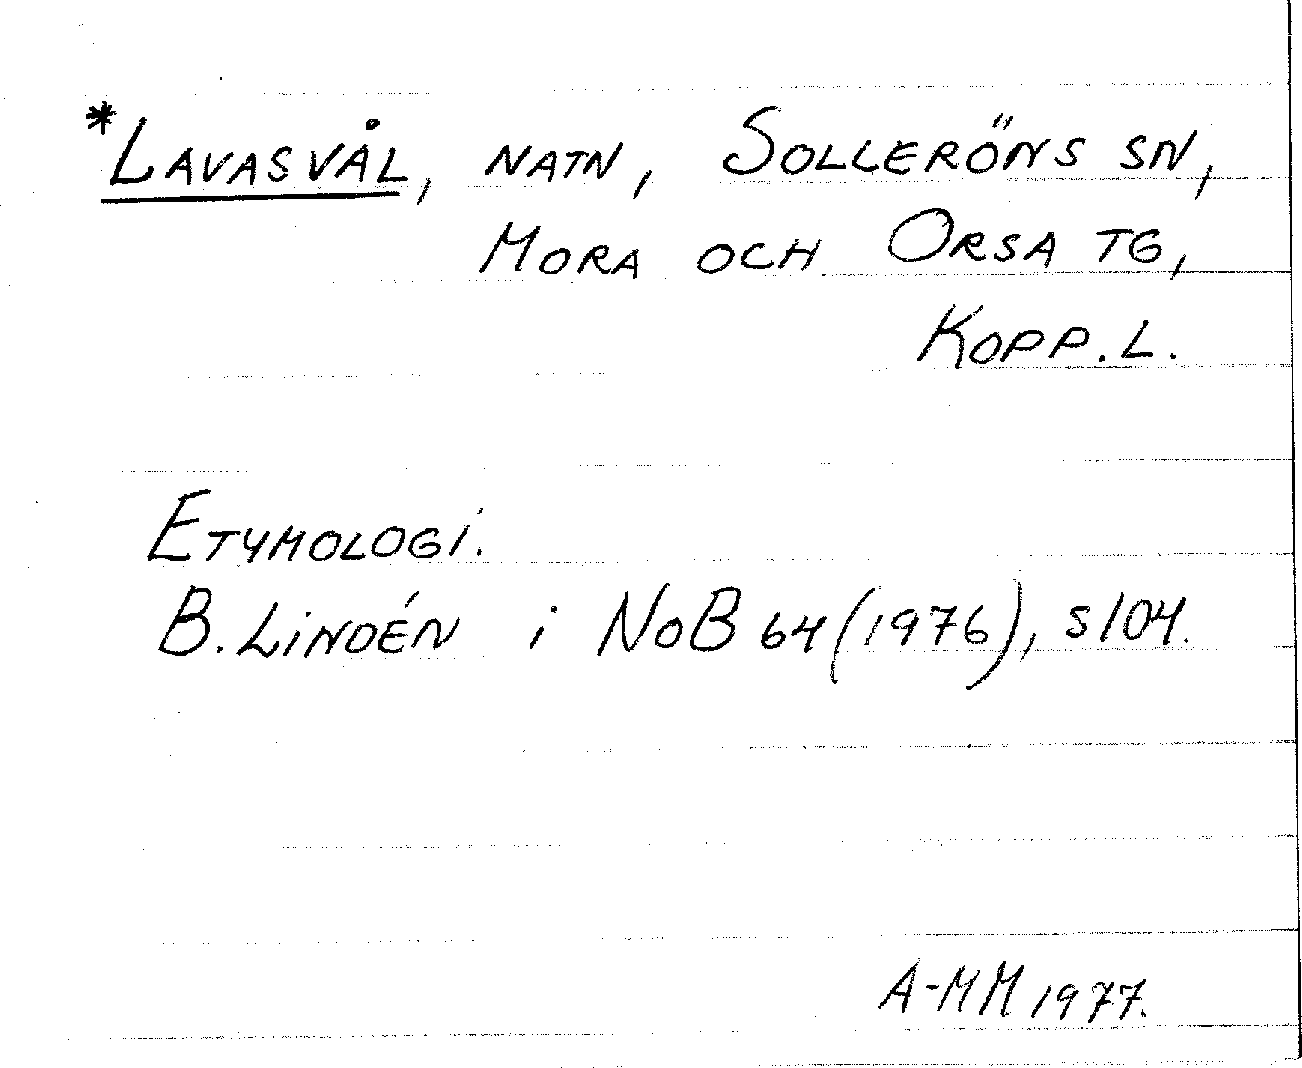 *LAVASVÅL, NATN, SOLLERÖNS SN,
MORA OCH ORSA TG,
KOPP. L.
ETYMOLOGI.
B. LINDÉN i NOB 64 (1976), S 104.
A-MM 1977.